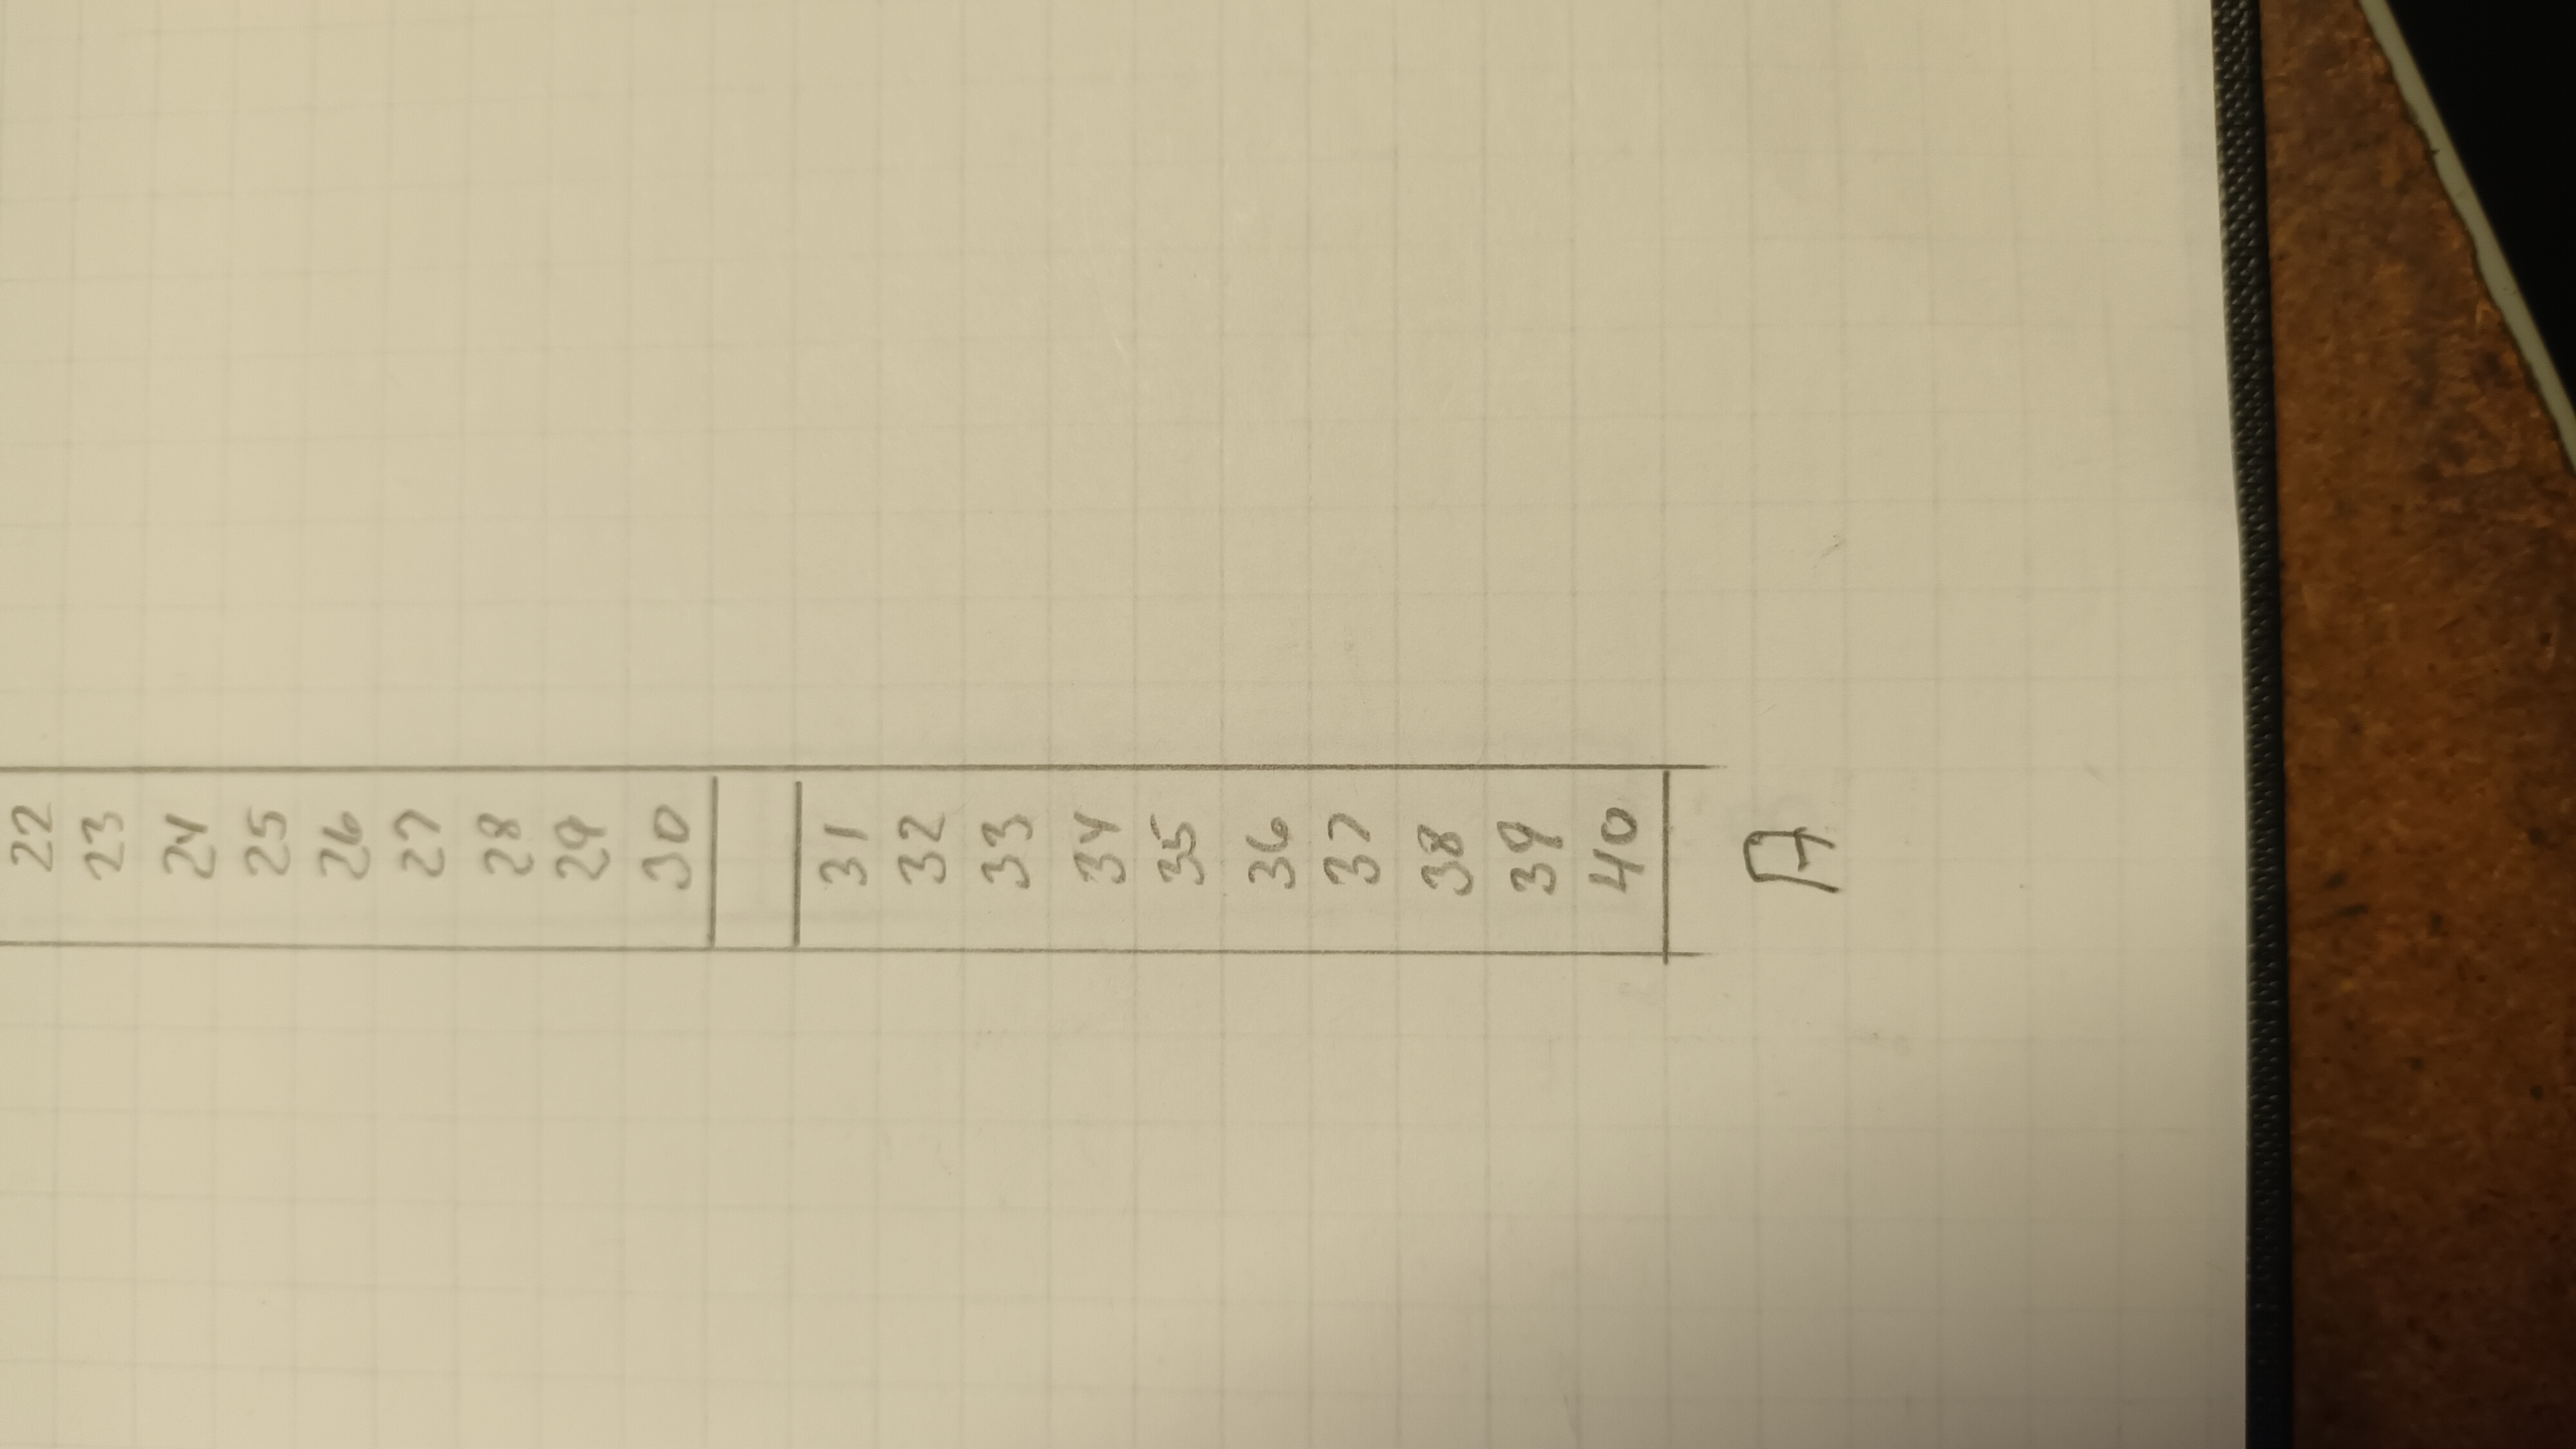 22
23
24
25
26
27
28
29
30
31
32
33
34
35
36
37
38
39
40
A